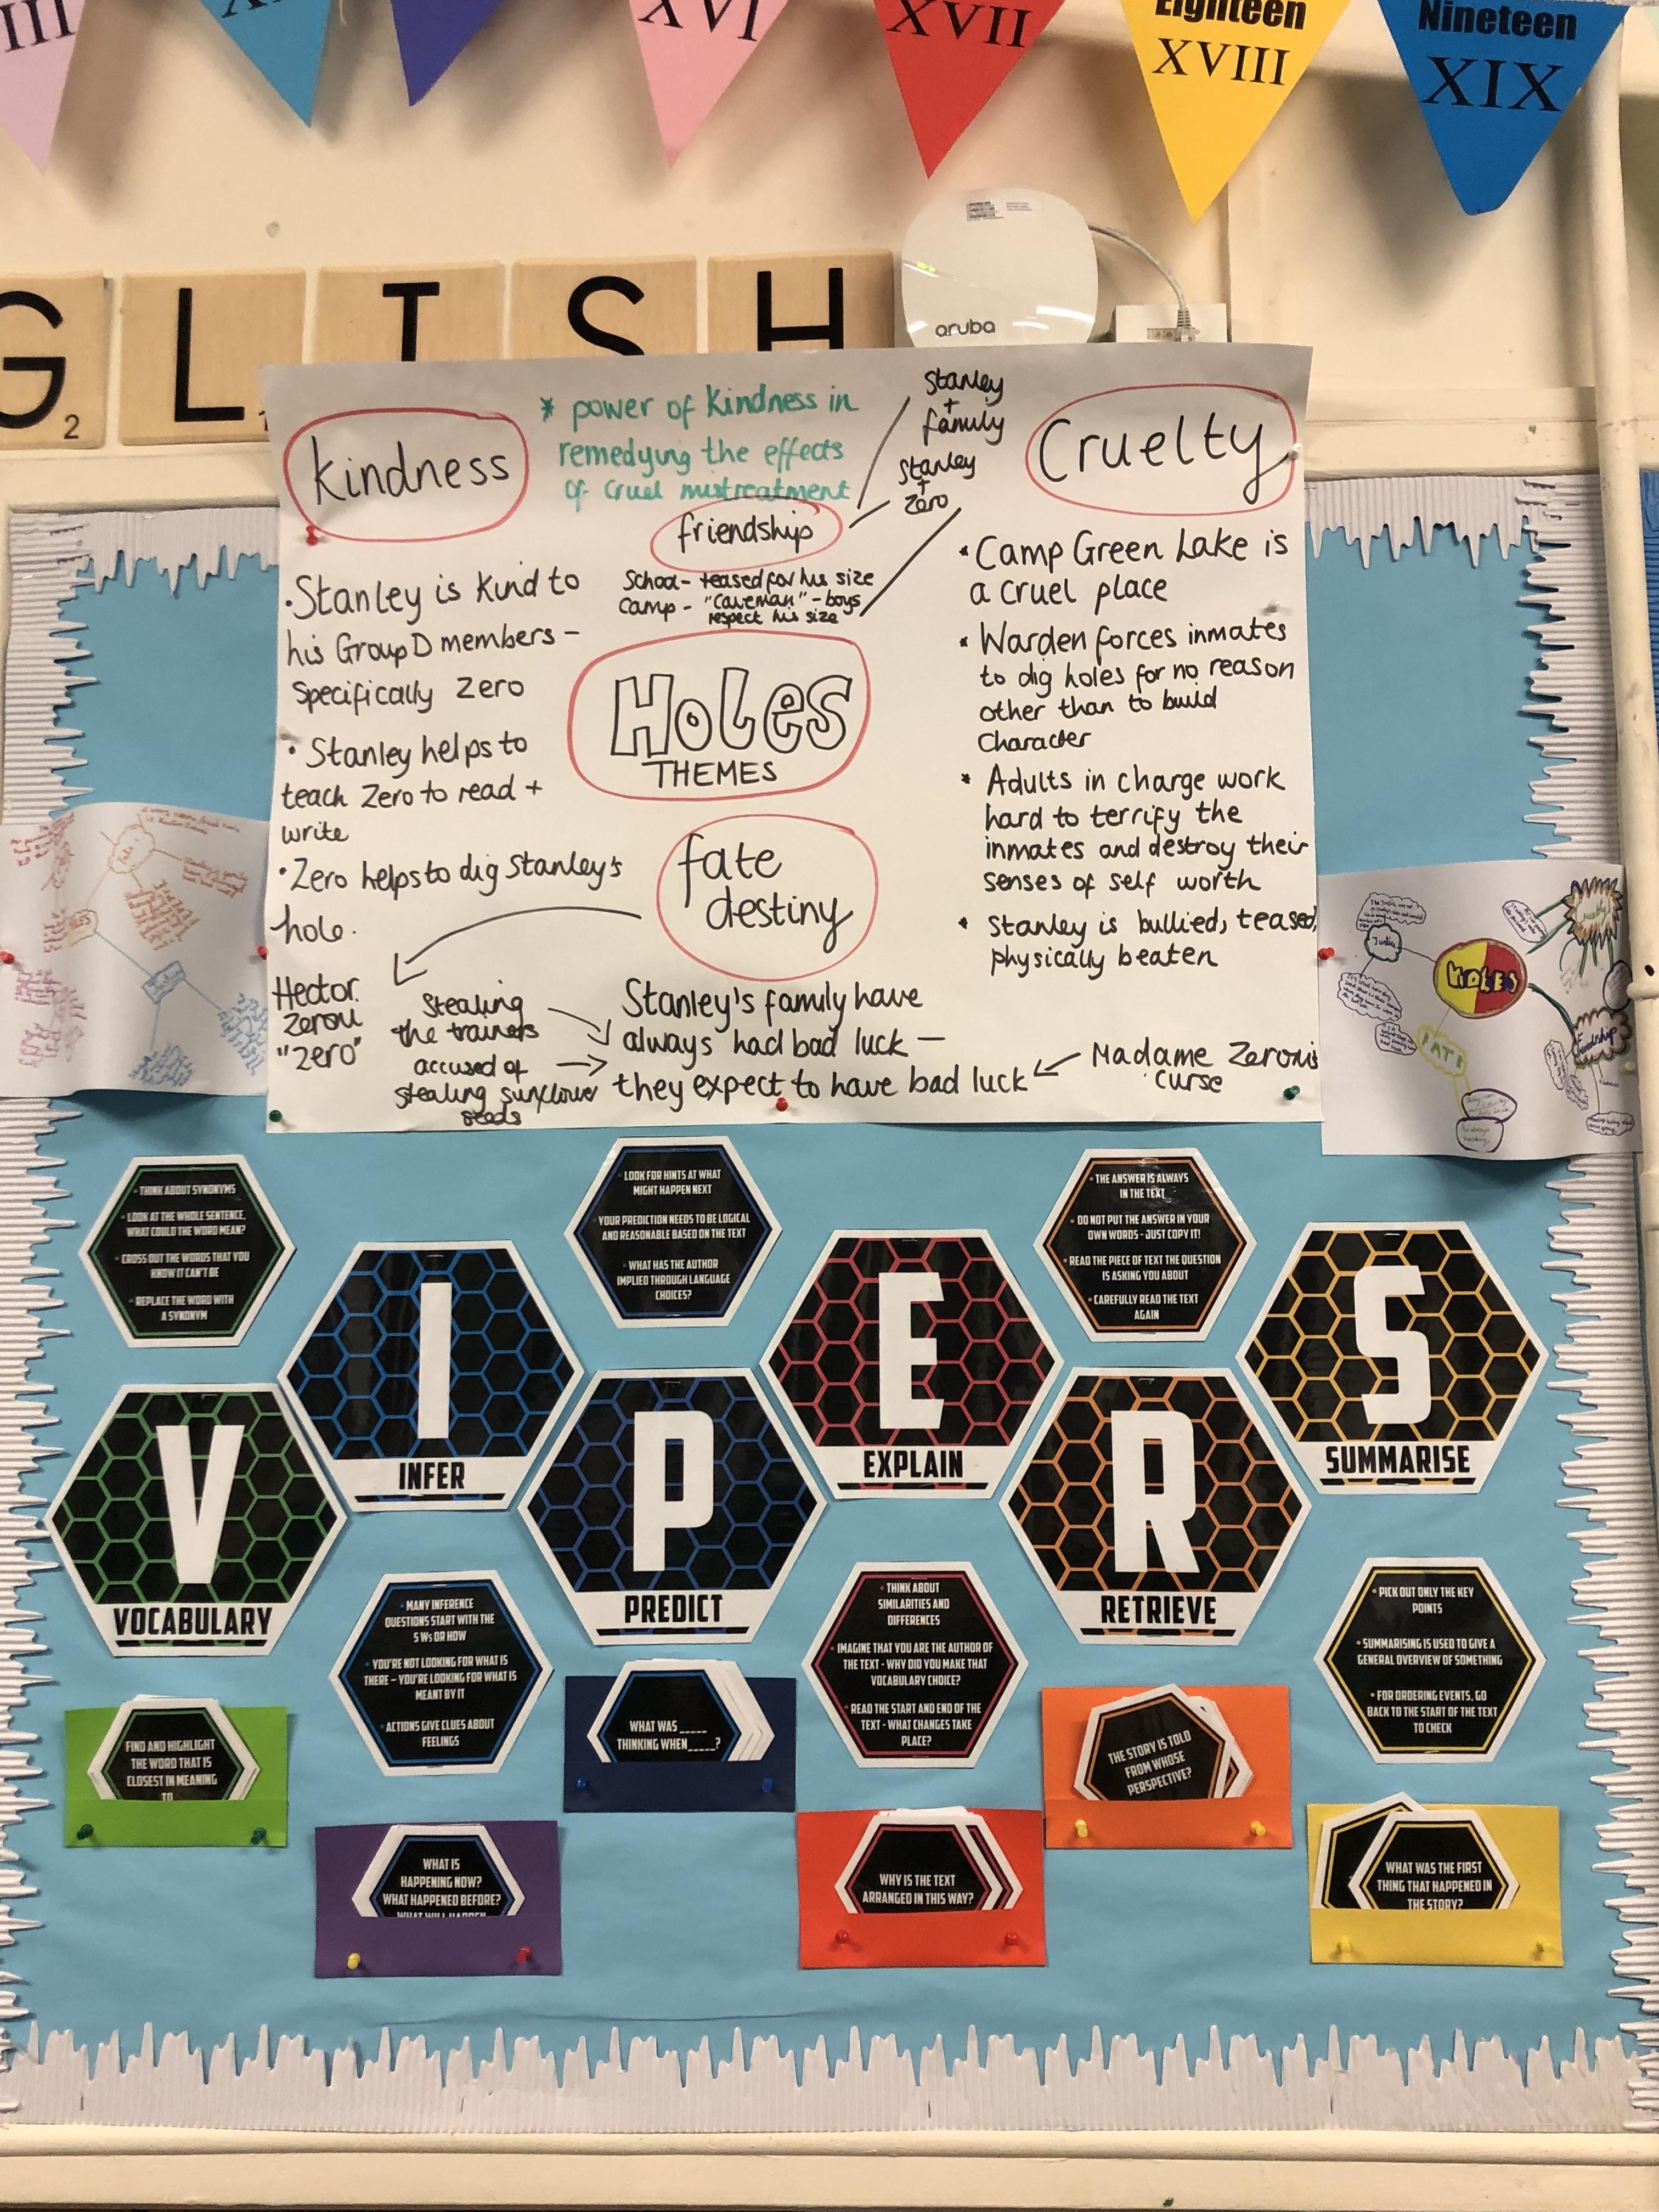 XVI
XVII
Eighteen
XVIII
Nineteen
XIX
G L I S H
2
aruba
Kindness
* power of Kindness in
remedying the effects
of cruel mistreatment
Stanley
+
family
Stanley
+
Zero
Cruelty
friendship
School- teased for his size
Camp - "Caveman" - boys
respect his size
·Stanley is kind to
his Group D members -
specifically Zero
· Stanley helps to
teach Zero to read +
write
· Zero helps to dig Stanley's
hole.
HOLES
THEMES
* Camp Green Lake is
a cruel place
* Warden forces inmates
to dig holes for no reason
other than to build
Character
* Adults in charge work
hard to terrify the
inmates and destroy their
senses of self worth
* Stanley is bullied, teased,
physically beaten
fate
destiny
Hector
Zeroni
"Zero"
Stealing
the trainers
accused of
stealing sunflower
seeds
Stanley's family have
always had bad luck -
they expect to have bad luck
Madame Zeroni's
curse
Justice
HOLES
FATE
friendship
• THINK ABOUT SYNONYMS
• LOOK AT THE WHOLE SENTENCE.
WHAT COULD THE WORD MEAN?
• CROSS OUT THE WORDS THAT YOU
KNOW IT CAN'T BE
• REPLACE THE WORD WITH
A SYNONYM
• LOOK FOR HINTS AT WHAT
MIGHT HAPPEN NEXT
• YOUR PREDICTION NEEDS TO BE LOGICAL
AND REASONABLE BASED ON THE TEXT
• WHAT HAS THE AUTHOR
IMPLIED THROUGH LANGUAGE
CHOICES?
• THE ANSWER IS ALWAYS
IN THE TEXT
• DO NOT PUT THE ANSWER IN YOUR
OWN WORDS - JUST COPY IT!
• READ THE PIECE OF TEXT THE QUESTION
IS ASKING YOU ABOUT
• CAREFULLY READ THE TEXT
AGAIN
V
VOCABULARY
I
INFER
P
PREDICT
E
EXPLAIN
R
RETRIEVE
S
SUMMARISE
• MANY INFERENCE
QUESTIONS START WITH THE
5 Ws OR HOW
• YOU'RE NOT LOOKING FOR WHAT IS
THERE - YOU'RE LOOKING FOR WHAT IS
MEANT BY IT
• ACTIONS GIVE CLUES ABOUT
FEELINGS
• THINK ABOUT
SIMILARITIES AND
DIFFERENCES
• IMAGINE THAT YOU ARE THE AUTHOR OF
THE TEXT - WHY DID YOU MAKE THAT
VOCABULARY CHOICE?
• READ THE START AND END OF THE
TEXT - WHAT CHANGES TAKE
PLACE?
• PICK OUT ONLY THE KEY
POINTS
• SUMMARISING IS USED TO GIVE A
GENERAL OVERVIEW OF SOMETHING
• FOR ORDERING EVENTS, GO
BACK TO THE START OF THE TEXT
TO CHECK
FIND AND HIGHLIGHT
THE WORD THAT IS
CLOSEST IN MEANING
TO
WHAT IS
HAPPENING NOW?
WHAT HAPPENED BEFORE?
WHAT WILL HAPPEN
WHAT WAS _____
THINKING WHEN_____?
WHY IS THE TEXT
ARRANGED IN THIS WAY?
THE STORY IS TOLD
FROM WHOSE
PERSPECTIVE?
WHAT WAS THE FIRST
THING THAT HAPPENED IN
THE STORY?